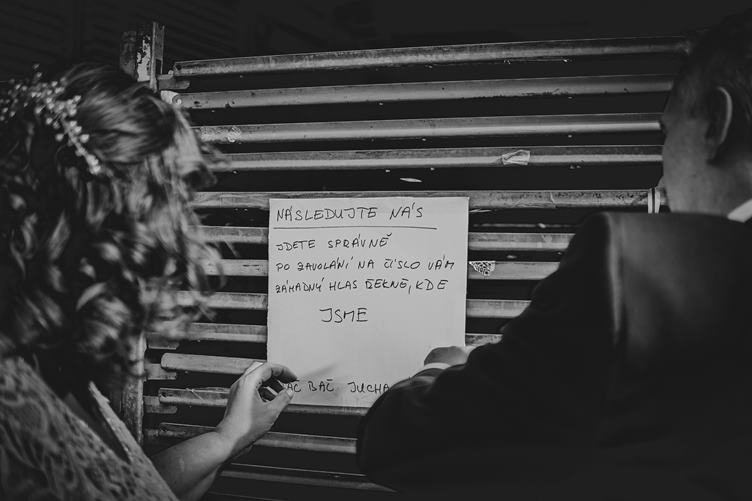 NÁSLEDUJTE NÁS
JDETE SPRÁVNĚ
PO ZAVOLÁNÍ NA ČÍSLO VÁM
ZÁHADNÝ HLAS ŘEKNE, KDE
JSME
BAČ